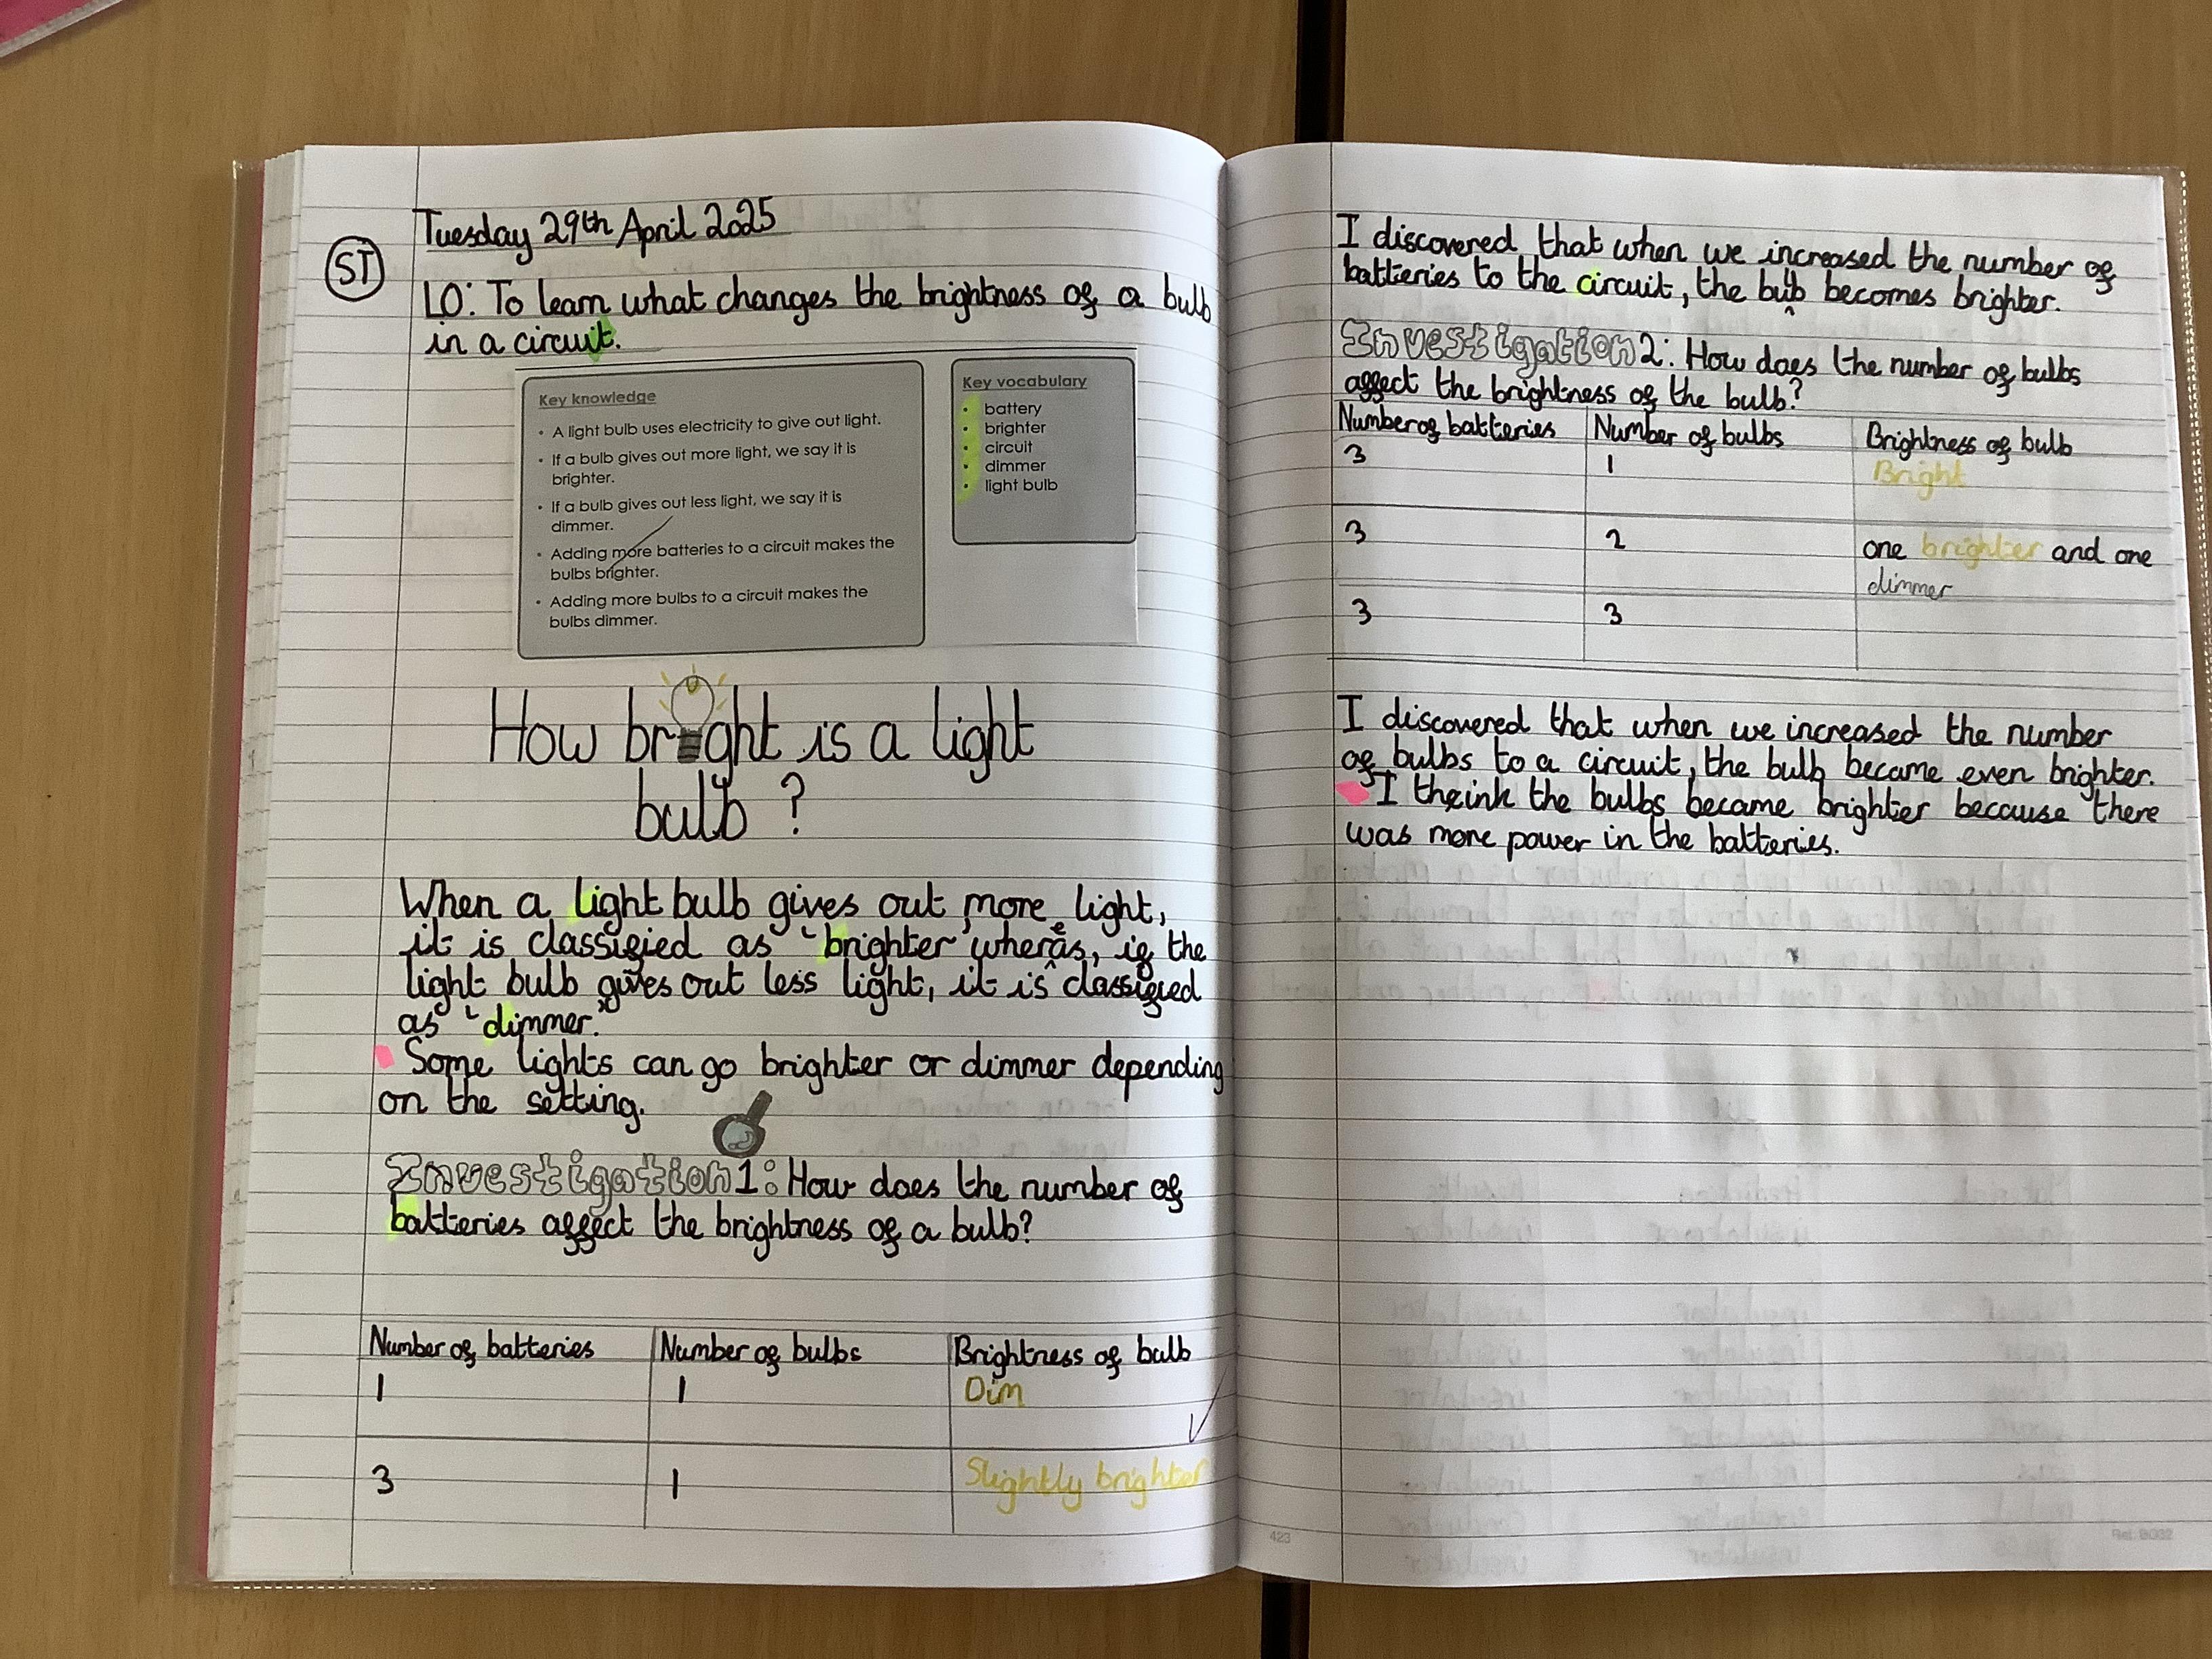 Tuesday 29th April 2025
ST
LO: To learn what changes the brightness of a bulb
in a circuit.
Key knowledge
• A light bulb uses electricity to give out light.
• If a bulb gives out more light, we say it is
brighter.
• If a bulb gives out less light, we say it is
dimmer.
• Adding more batteries to a circuit makes the
bulbs brighter.
• Adding more bulbs to a circuit makes the
bulbs dimmer.
Key vocabulary
• battery
• brighter
• circuit
• dimmer
• light bulb
How bright is a light
bulb?
When a light bulb gives out more light,
it is classified as 'brighter' whereas, if the
light bulb gives out less light, it is classified
as 'dimmer.'
Some lights can go brighter or dimmer depending
on the setting.
Investigation 1: How does the number of
batteries affect the brightness of a bulb?
Number of batteries Number of bulbs Brightness of bulb
1 1 Dim
3 1 Slightly brighter
I discovered that when we increased the number of
batteries to the circuit, the bulb becomes brighter.
Investigation 2: How does the number of bulbs
affect the brightness of the bulb?
Number of batteries Number of bulbs Brightness of bulb
3 1 Bright
3 2 one brighter and one
dimmer
3 3
I discovered that when we increased the number
of bulbs to a circuit, the bulb became even brighter.
I think the bulbs became brighter because there
was more power in the batteries.
423